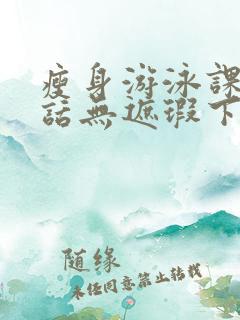 瘦身游泳課
話無遮瑕下
随缘
未任同意禁止轉載